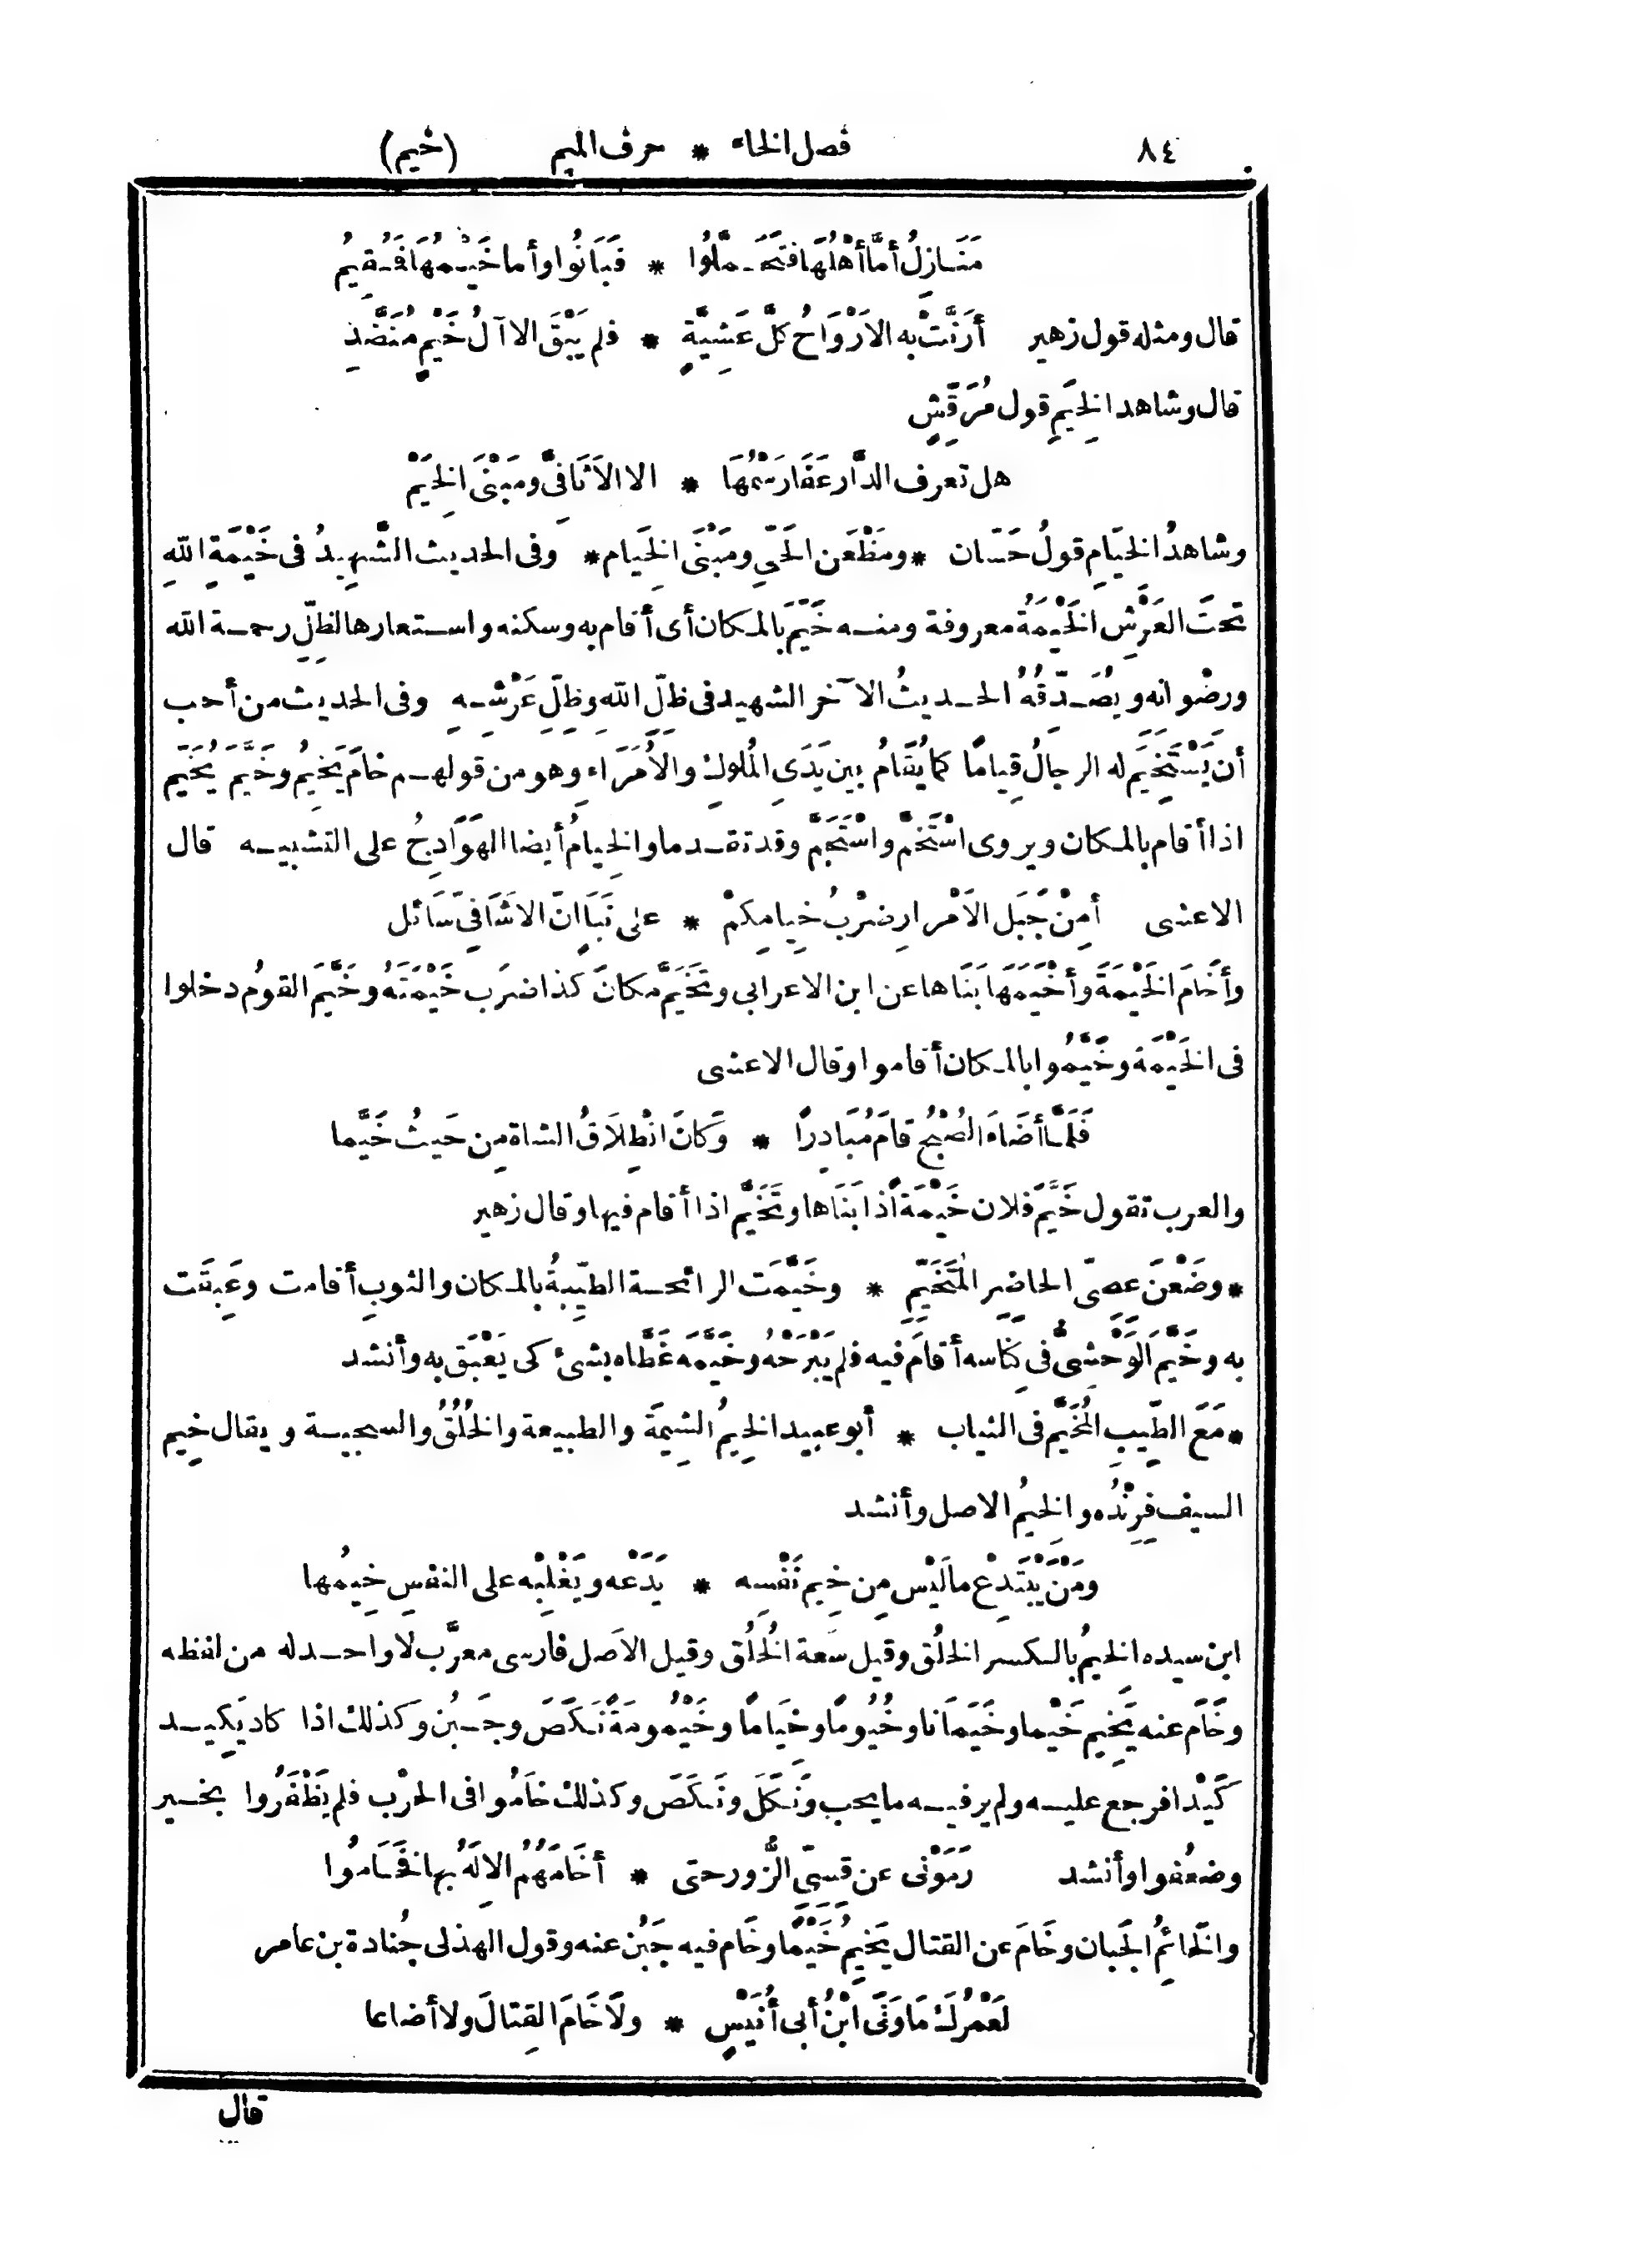 ٨٤ فصل الخاء * حرف الميم (خيم)
مَنَازِلُ أمَّا أهْلُهَا فتَحَمَّلُوا * فَبَانُوا وأما خَيْمُهَا فَمُقِيمُ
قال ومثله قول زهير أرَنَّتْ به الاَرْوَاحُ كلَّ عَشِيَّةٍ * فلم يَبْقَ الا آلُ خَيْمٍ مُنَضَّدِ
قال وشاهد الخِيَمِ قول مُرَقِّشٍ
هل تعرف الدَّار عَفَا رَسْمُهَا * الا الاَثَافِىَّ ومَبْنَى الخِيَمْ
وشاهدُ الخِيَامِ قولُ حَسّان * ومَظْعَن الحَىِّ ومَبْنَى الخِيَام * وفى الحديث الشَّهِيدُ فى خَيْمَةِ اللّهِ
تحتَ العَرْشِ الخَيْمَةُ معروفة ومنه خَيَّمَ بالمكان أى أقام به وسكنه واستعارها لظِلِّ رحمة الله
ورضْوانه ويُصَدِّقُهُ الحديثُ الآخر الشهيد فى ظِلِّ اللّه وظِلِّ عَرْشِهِ وفى الحديث من أحب
أن يَسْتَخِيمَ له الرجالُ قِيامًا كما يُقَامُ بين يَدَىِ المُلوكِ والاُمَرَاءِ وهو من قولهم خامَ يَخِيمُ وخَيَّمَ يُخَيِّمُ
اذا أقام بالمكان ويروى اسْتَخَمَّ واسْتَجَمَّ وقد تقدما والخِيامُ أيضا الهَوَادِجُ على التشبيه قال
الاعشى أمِنْ جَبَل الاَمْرارِ ضرْبُ خِيامِكمْ * على نَبَإٍ انّ الاَشَافِىَّ سَائل
وأخَامَ الخَيْمَةَ وأخْيَمَهَا بَنَاها عن ابن الاعرابى وتَخَيَّم مكانَ كذا ضرَب خَيْمَتَهُ وخَيَّمَ القومُ دخلوا
فى الخَيْمَة وخَيَّمُوا بالمكان أقاموا وقال الاعشى
فَلَمَّا أضَاءَ الصُّبْحُ قامَ مُبَادِرًا * وَكانَ انْطِلَاقُ الشاة مِن حَيثُ خَيَّما
والعرب تقول خَيَّمَ فلان خَيْمَةً اذا بَنَاها وتَخَيَّم اذا أقام فيها وقال زهير
* وضَعْنَ عِصِىَّ الحاضِرِ المُتَخَيِّمِ * وخَيَّمَت الرائحة الطيِّبةُ بالمكان والثوبِ أقامت وعَبِقَت
به وخَيَّمَ الوَحْشِىُّ فى كِنَاسه أقامَ فيه فلم يَبْرَحْهُ وخَيَّمَه غَطَّاه بشئ كى يَعْبَق به وأنشد
* مَعَ الطِّيبِ المُخَيَّمِ فى الثياب * أبو عبيد الخِيمُ الشِيمَة والطبيعة والخُلُقُ والسجية ويقال خِيم
السيف فِرِنْدُه والخِيمُ الاصل وأنشد
ومَنْ يَبْتَدِعْ ما لَيْس مِن خِيم نَفْسِه * يَدَعْه ويَغْلِبْه على النفسِ خِيمُها
ابن سيده الخِيمُ بالكسر الخلُق وقيل سَعة الخُلُق وقيل الاَصل فارسى معرَّب لا واحد له من لفظه
وخَام عنه يَخِيم خَيْما وخَيَمَانا وخُيُومًا وخِيَامًا وخَيْمُومَةً نَكَصَ وجَبُن وكذلك اذا كاد يَكِيد
كَيْدا فرجع عليه ولم ير فيه ما يحب ونَكَلَ ونَكَصَ وكذلك خَامُوا فى الحرْب فلم يَظْفَرُوا بخير
وضعُفوا وأنشد رَمَوْنى عن قِسِىِّ الزُّور حتى * أخَامَهُمُ الاِلَهُ بها فخَامُوا
والخائِمُ الجَبان وخَامَ عن القتال يَخِيمُ خَيْمًا وخَام فيه جَبُن عنه وقول الهذلى جُنادة بن عامر
لَعَمْرُكَ مَا وَنَى ابْنُ أبى أُنَيْسٍ * ولَا خَامَ القِتالَ ولا أضاعا
قال